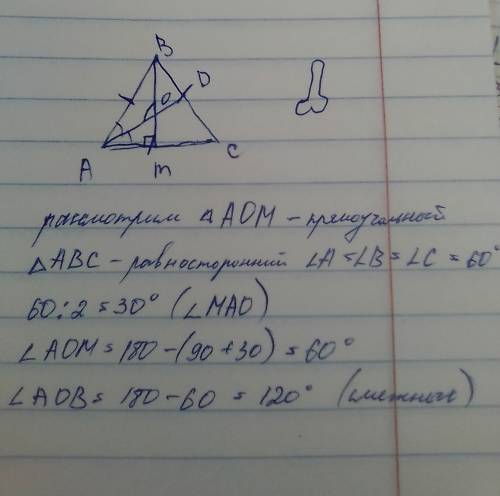 B
D
O
A
M
C
рассмотрим △AOM - прямоугольный
△ABC - равносторонний ∠A = ∠B = ∠C = 60°
60 : 2 = 30° (∠MAO)
∠AOM = 180 - (90 + 30) = 60°
∠AOB = 180 - 60 = 120° (смежные)